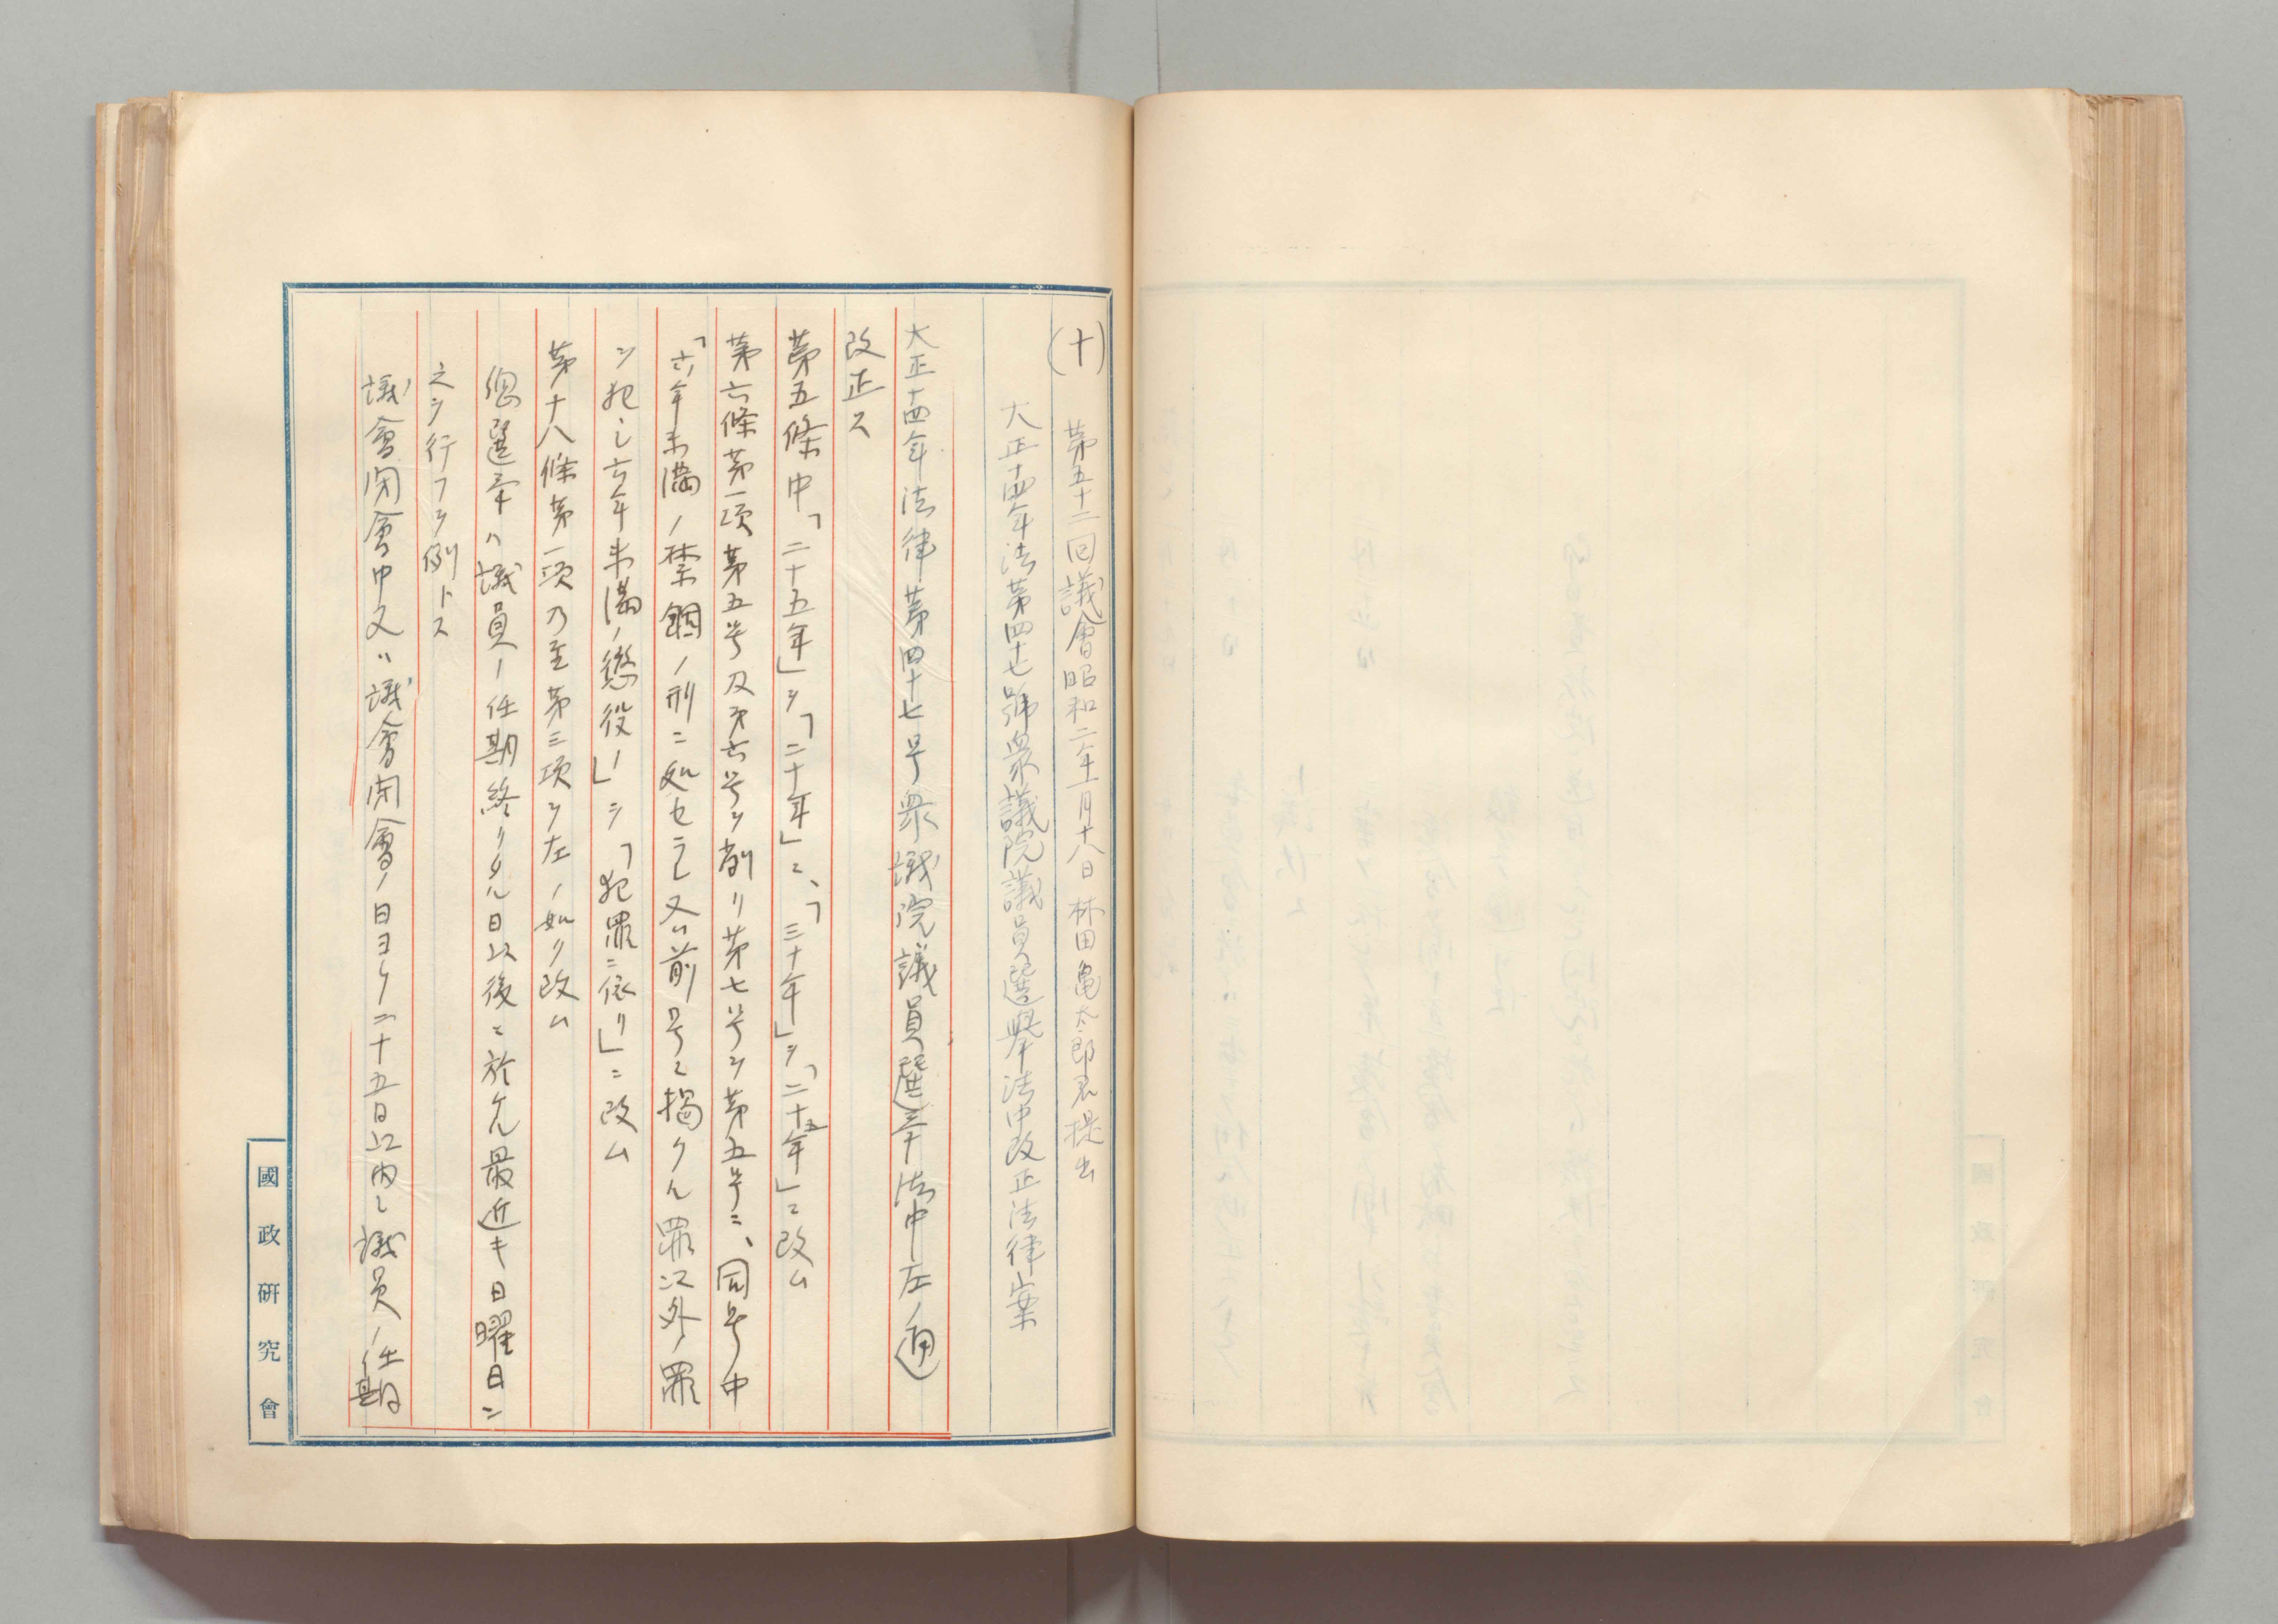 (十)
第五十二回議會昭和二年二月十八日 林田亀太郎君提出
大正十四年法第四十七號衆議院議員選擧法中改正法律案
大正十四年法律第四十七号衆議院議員選挙法中左ノ通
改正ス
第五條中「二十五年」ヲ「二十年」ニ、「三十年」ヲ「二十五年」ニ改ム
第六條第一項第五号及第六号ヲ削リ第七号ヲ第五号ニ、同号中
「六年未満ノ禁錮ノ刑ニ処セラレ又ハ前号ニ掲クル罪以外ノ罪
ヲ犯シ六年未満ノ懲役ノ」ヲ「犯罪ニ依リ」ニ改ム
第十八條第一項乃至第三項ヲ左ノ如ク改ム
総選挙ハ議員ノ任期終リタル日以後ニ於ケル最近キ日曜日ニ
之ヲ行フヲ例トス
議會開會中又ハ議會閉會ノ日ヨリ二十五日以内ニ議員ノ任期
國政研究會